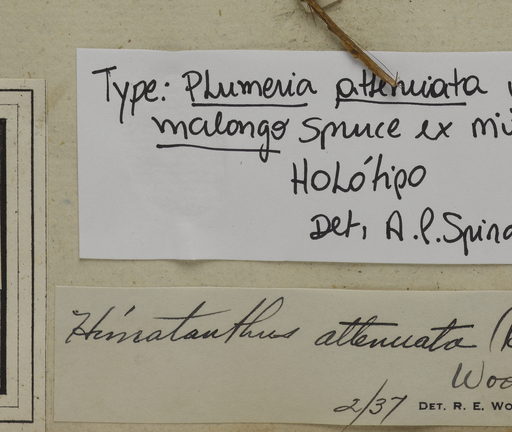 Type: Plumeria attenuata
malongo Spruce ex mü
Holótipo
Det. A.P. Spina
Himatanthus attenuata (B
Woo
2/37 DET. R. E. WO